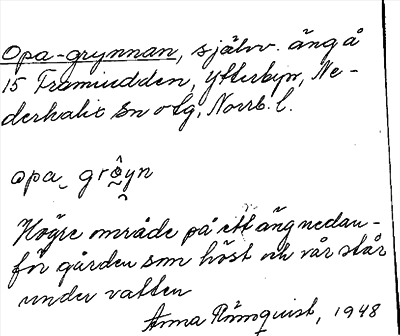 Opa-grynnan, självv. äng å
15 Framiudden, Ytterbyn, Ne-
derkalix sn o tg, Norrb. l.
opa gröyn
Högre område på ett äng nedan-
för gården som höst och vår står
under vatten
Anna Römquist, 1948